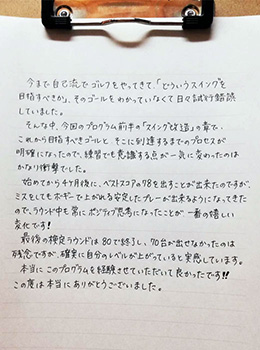 今まで自己流でゴルフをやってきて、「どういうスイングを
目指すべきか」、そのゴールをわかっていなくて日々試行錯誤
していました。
そんな中、今回のプログラム前半の「スイング改造」の章で、
これから目指すべきゴールと そこに到達するまでのプロセスが
明確になったので、練習でも意識する点が一気に変わったのは
かなり衝撃でした。
始めてから4ヶ月後に、ベストスコアの78を出すことが出来たのですが、
ミスをしてもボギーで上がれる安定したプレーが出来るようになってきた
ので、ラウンド中も常にポジティブ思考になったことが 一番の嬉しい
変化です!
最後の検定ラウンドは 80で終了し、70台が出せなかったのは
残念ですが、確実に自分のレベルが上がっていると実感しています。
本当にこのプログラムを経験させていただいて良かったです!!
この度は本当にありがとうございました。